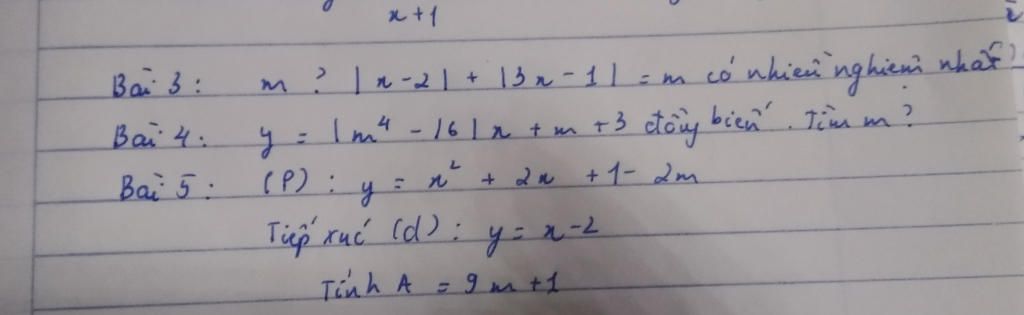 x + 1
Bài 3 : m ? |x - 2| + |3x - 1| = m có nhiều nghiệm nhất ?
Bài 4 : y = |m⁴ - 16|x + m + 3 đồng biến . Tìm m ?
Bài 5 : (P) : y = x² + 2x + 1 - 2m
Tiếp xúc (d) : y = x - 2
Tính A = 9m + 1